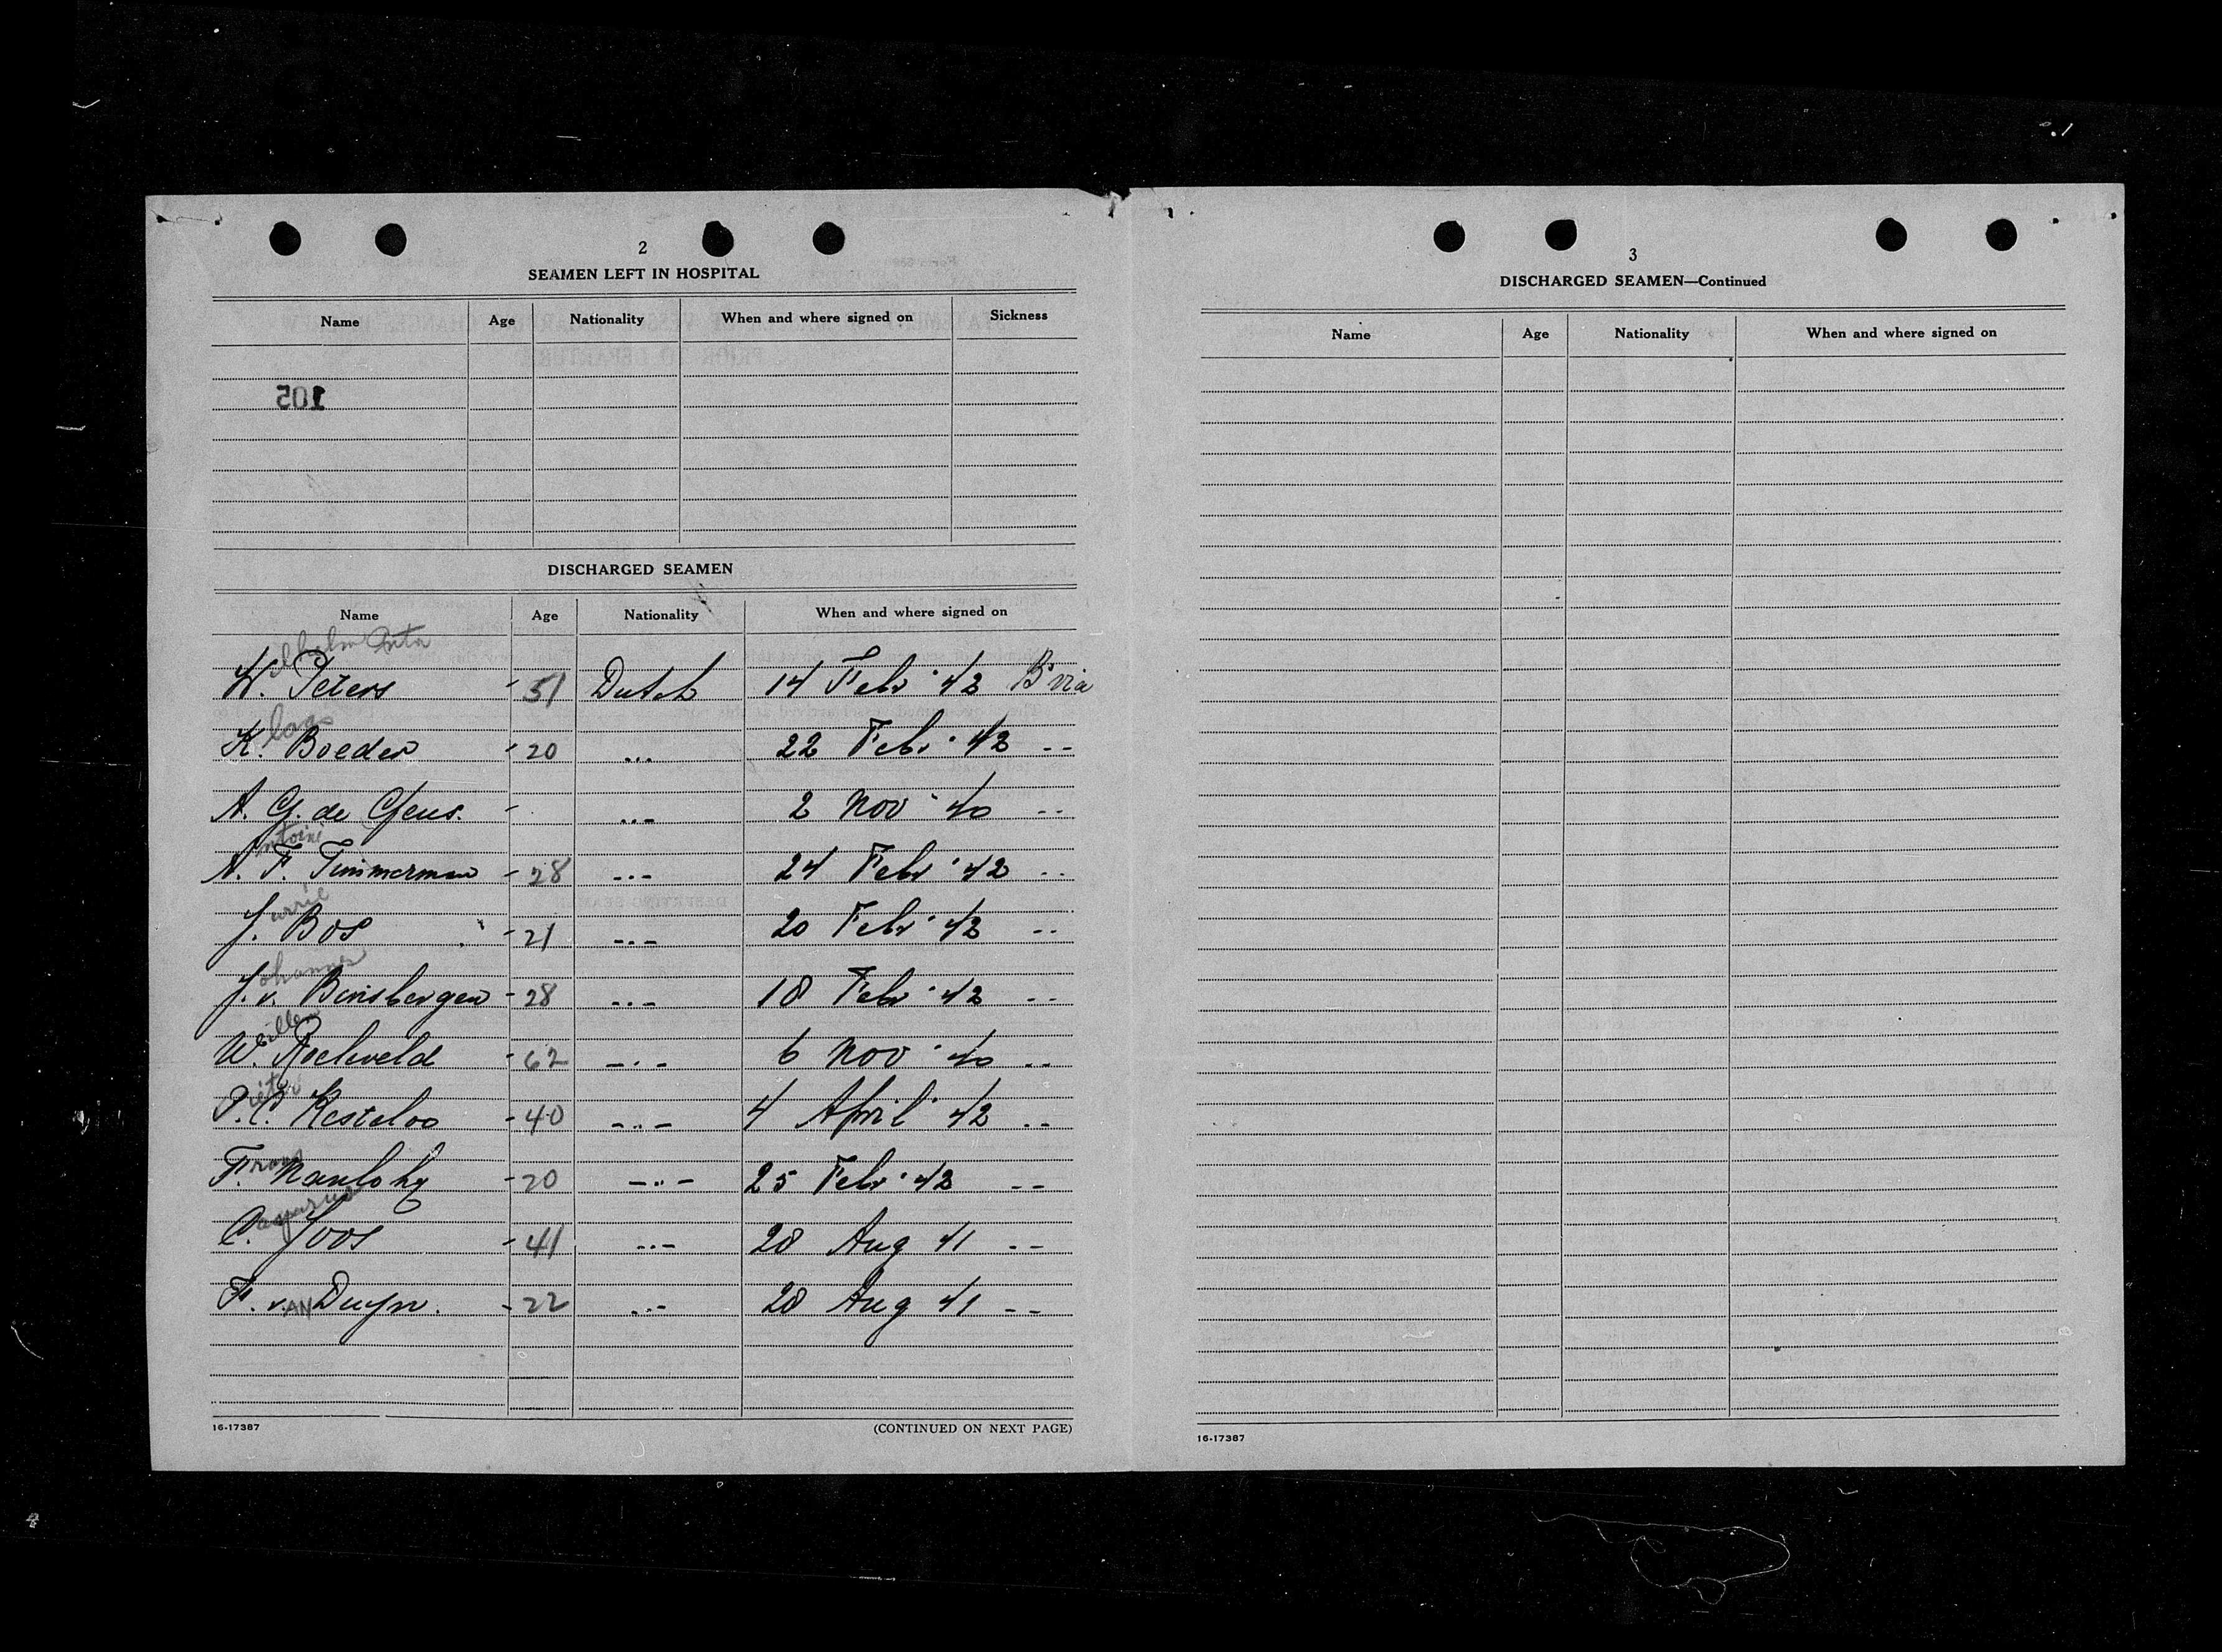 2
SEAMEN LEFT IN HOSPITAL
Name Age Nationality When and where signed on Sickness
105
DISCHARGED SEAMEN
Name Age Nationality When and where signed on
W. Peters - 51 Dutch 14 Febr '42 B'via
Klaas
K. Boeder - 20 -"- 22 Febr '42 --
A. G. de Geus. - -"- 2 Nov '40 --
Antoine
A. F. Timmerman - 28 -"- 24 Febr '42 --
J. Bos - 21 -"- 20 Febr '42 --
Johannes
J. v. Bensbergen - 28 -"- 18 Febr '42 --
Willem
W. - 62 -"- 6 Nov '40 --
Pieter
P. C. Kesteloo - 40 -"- 4 April '42 --
Frans
F. - 20 -"- 25 Febr '42 --
Casparus
C. Joos - 41 -"- 28 Aug 41 --
F. VAN Duyn. - 22 -"- 28 Aug 41 --
16-17387 (CONTINUED ON NEXT PAGE)
3
DISCHARGED SEAMEN—Continued
Name Age Nationality When and where signed on
16-17387